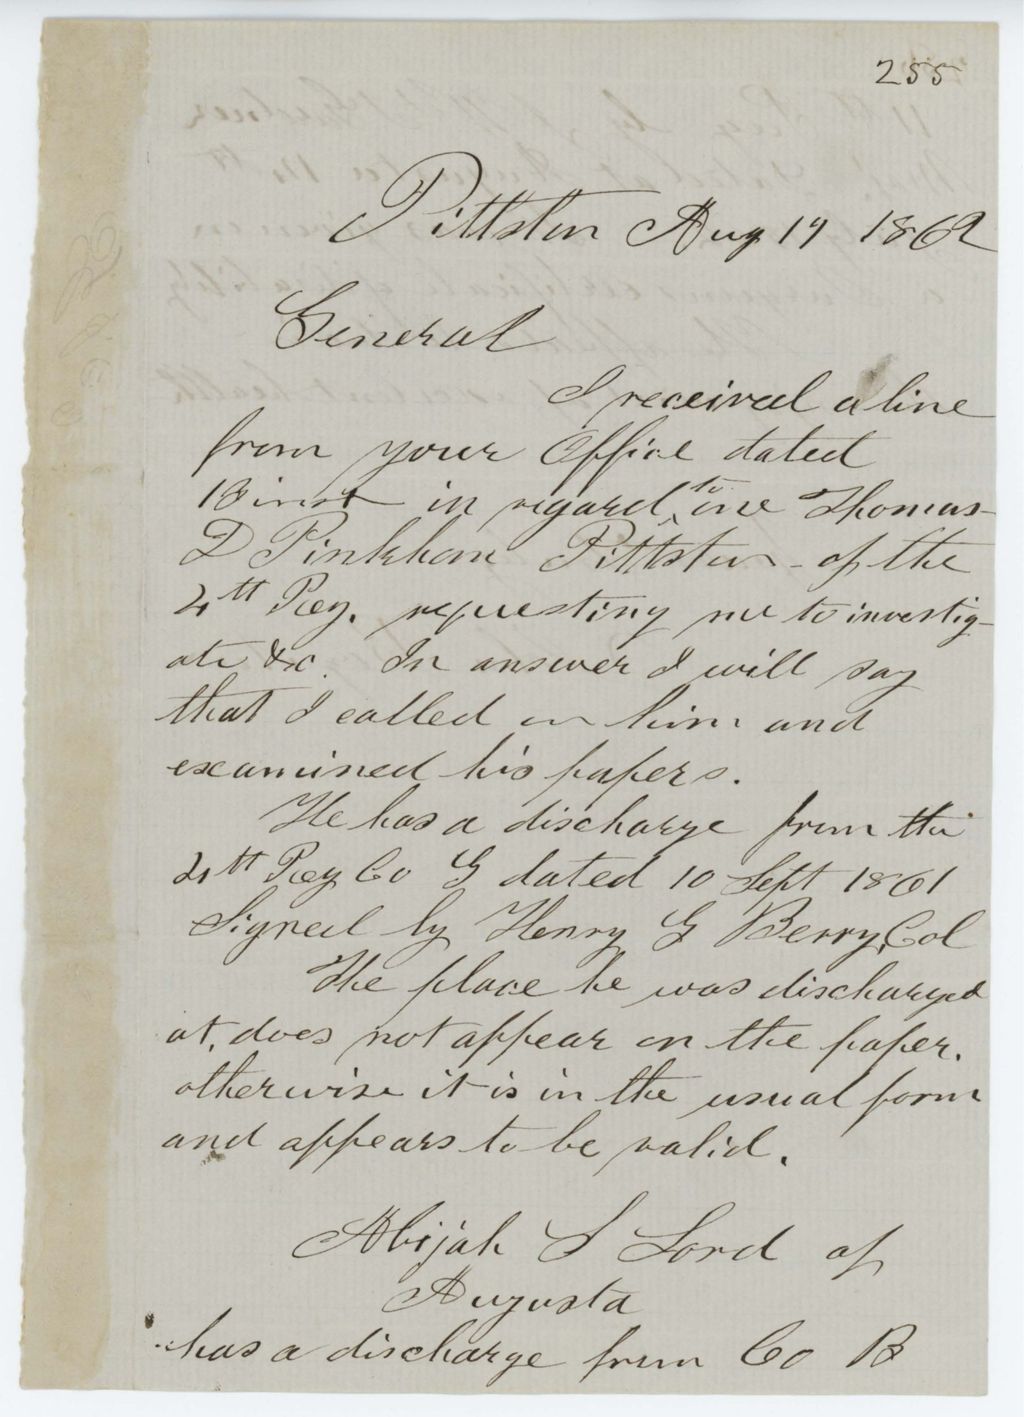 255
Pittston Aug 19 1862
General
I received a line
from your Office dated
18 inst in regard to one Thomas
D Pinkham Pittston - of the
4th Reg. requesting me to investig-
ate &c. In answer I will say
that I called on him and
examined his papers.
He has a discharge from the
4th Reg Co G dated 10 Sept 1861
Signed by Henry G Berry, Col
The place he was discharged
at, does not appear on the paper.
otherwise it is in the usual form
and appears to be valid.
Abijah S Lord of
Augusta
has a discharge from Co B